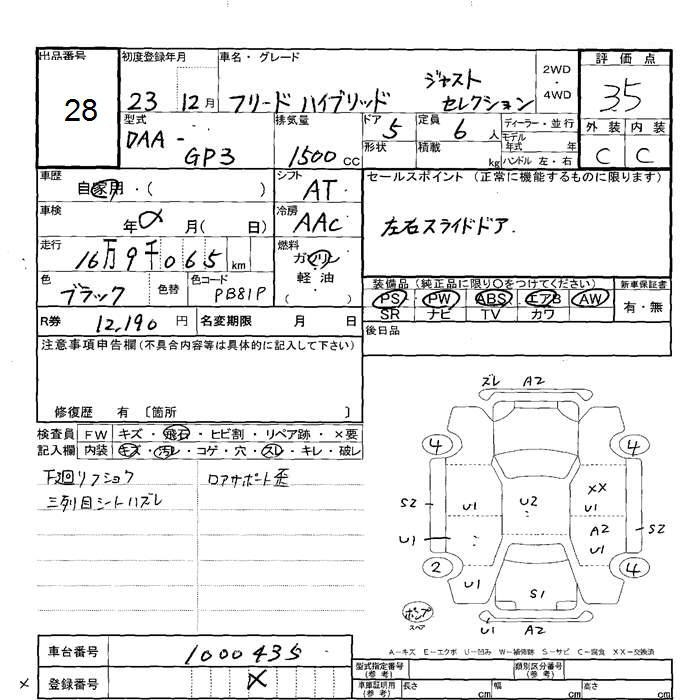 出品番号 初度登録年月 車名・グレード 評価点
28 23 12月 フリードハイブリッド ジャストセレクション 2WD・4WD 3.5
型式 排気量 ドア 定員 ディーラー・並行 外装 内装
DAA-GP3 1500cc 5 6人 モデル年式 年 C C
形状 積載 kg ハンドル 左・右
車歴 シフト セールスポイント (正常に機能するものに限ります)
自家用・( ) AT
車検 冷房
年 月( 日) AAC 左右スライドドア.
走行 燃料
16万9千065km ガソリン
軽油
( )
色 色替 色コード 装備品 (純正品に限り○をつけてください) 新車保証書
ブラック PB81P PS PW ABS エアB AW 有・無
SR ナビ TV カワ
R券 12,190円 名変期限 月 日 後日品
注意事項申告欄(不具合内容等は具体的に記入して下さい)
修復歴 有 〔箇所 〕
検査員 FW キズ・飛石・ヒビ割・リペア跡・×要
記入欄 内装 キズ・汚レ・コゲ・穴・スレ・キレ・破レ
下廻リフショク ロアサポート歪
三列目シートハズレ
ズレ A2
4 4
XX
S2 U1 U2 U1
A2 S2
U1 U1
2 4
U1 S1
ポンプ
スペア
U1 A2
A-キズ E-エクボ U-凹み W-補修跡 S-サビ C-腐食 XX-交換済
車台番号 1000435 型式指定番号(参考) 類別区分番号(参考)
× 登録番号 × 車庫証明用(参考) 長さ cm 幅 cm 高さ cm